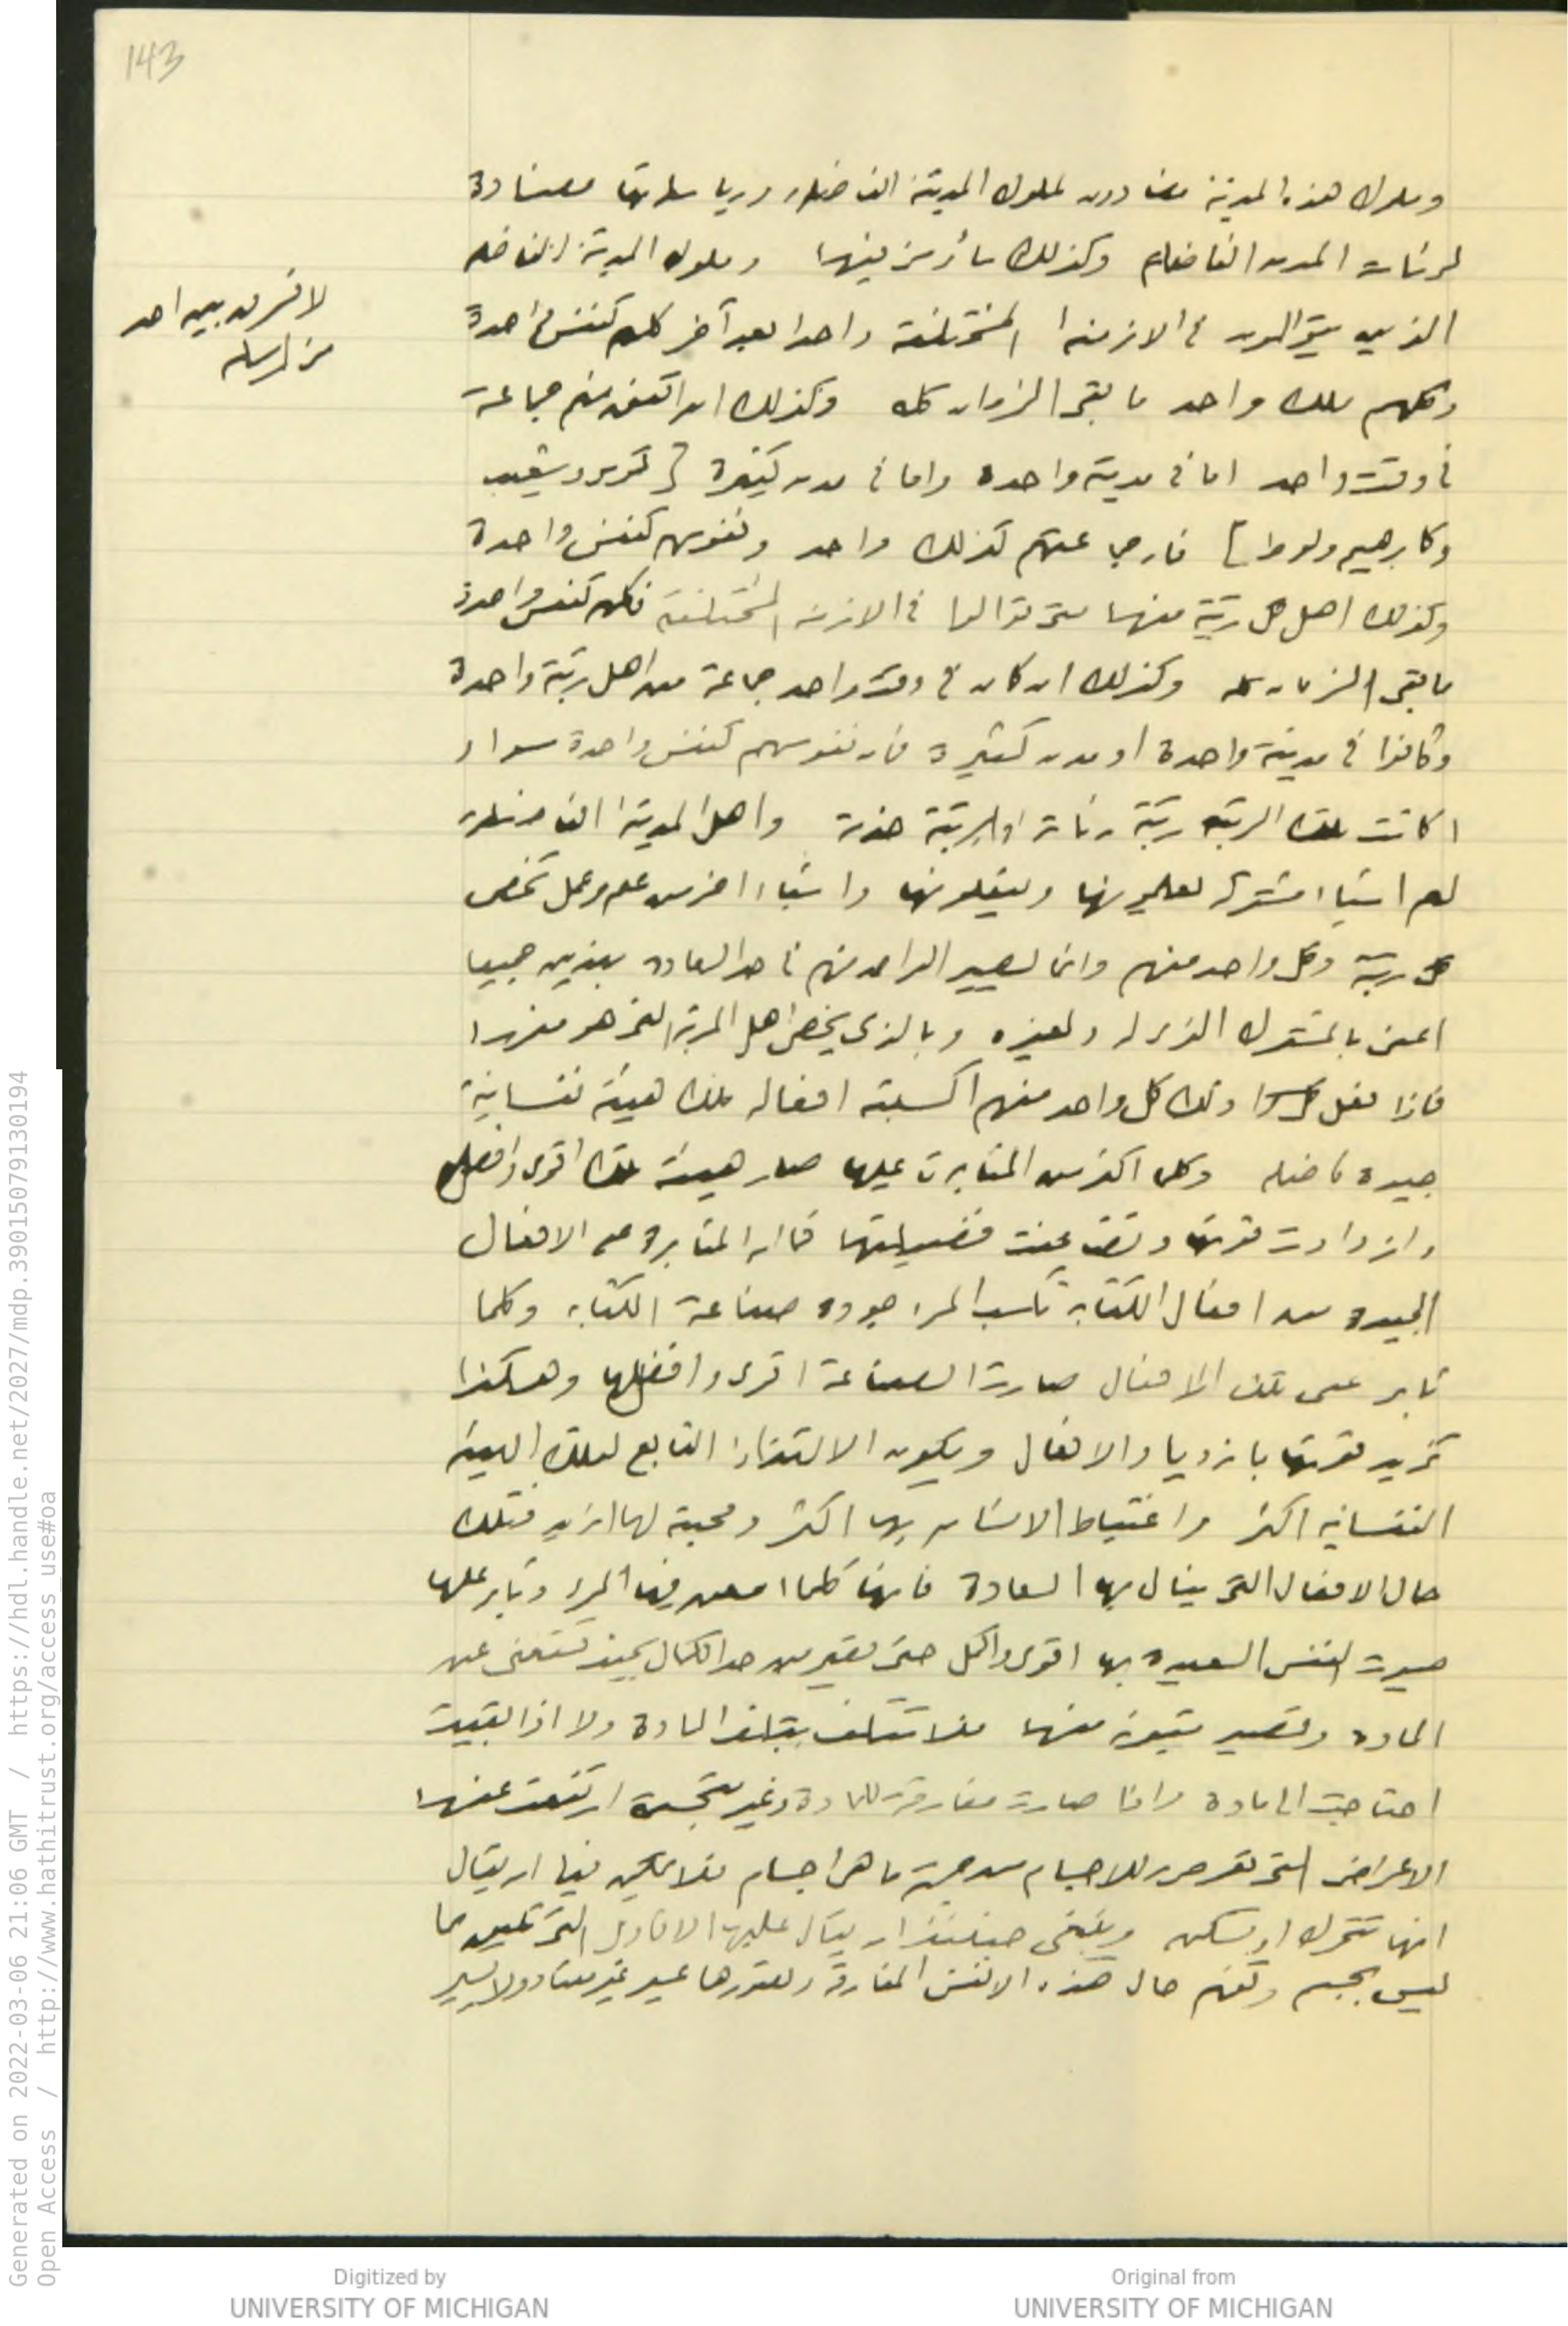 143
وملوك هذه المدينة مضادون لملوك المدينة الفاضلة ورياساتها مضادة
لرئاسات المدن الفاضلة وكذلك سائر من فيها وملوك المدينة الفاضله
الذين يتوالون في الازمنه المختلفة واحدا بعد آخر كلهم كنفس واحدة
وكلهم ملك واحد ما بقى الزمان كله وكذلك ان اتفق منهم جماعة
فى وقت واحد اما فى مدينة واحده واما فى مدن كثيرة [ كموسى وشعيب
وكابرهيم ولوط ] فان جماعتهم كذلك واحد ونفوسهم كنفس واحدة
وكذلك اهل كل رتبة منها متى توالوا في الازمنه المختلفة فكلهم كنفس واحدة
ما بقى الزمان كله وكذلك ان كان في وقت واحد جماعة من اهل رتبة واحدة
وكانوا فى مدينة واحدة او مدن كثيرة فان نفوسهم كنفس واحدة سواء
اكانت تلك الرتبة رتبة رئاسة او رتبة خدمة واهل المدينة الفاضلة
لهم اشياء مشتركة يعلمونها ويفعلونها واشياء اخر من علم وعمل تخص
كل رتبة وكل واحد منهم وانما يصير الواحد منهم فى حد السعاده بهذين جميعا
اعنى بالمشترك الذى له ولغيره وبالذى يخص اهل المرتبة التى هو منها
فاذا فعل ذلك كل واحد منهم اكسبته افعاله تلك هيئة نفسانية
جيدة فاضله وكلما اكثر من المثابرة عليها صار هيئة تلك اقوى وافضل
وازدادت قوتها وتضاعفت فضيلتها كما ان المثابرة على الافعال
الجيده من افعال الكتابة تكسب المرء جودة صناعة الكتابه وكلما
ثابر على تلك الافعال صارت الصناعة اقوى وافضلها وهكذا
تزيد قوتها بازدياد الافعال ويكون الالتذاذ التابع لتلك الهيئة
النفسانيه اكثر واغتباط الانسان بها اكثر ومحبته لها ازيد فتلك
حال الافعال التى ينال بها السعادة فانها كلما امعن فيها المرء وثابر عليها
صيرت النفس السعيدة بها اقوى واكمل حتى تصير من حد الكمال بحيث تستغنى عن
الماده وتصير متبرئة منها فلا تتلف بتلف المادة ولا اذا بقيت
احتاجت الى مادة واذا صارت مفارقة للمادة وغير متجسمة ارتفعت عنها
الاعراض التى تعرض للاجسام من جهة ما هى اجسام فلا يمكن فيها ان يقال
انها تتحرك او تسكن وينبغى حينئذ ان يقال عليها الاقاويل التى تليق بما
ليس بجسم وتفهم حال هذه الانفس المفارقة وتصورها عسير غير معتاد ولا يسير
لا نفرق بين احد
من رسله
Generated on 2022-03-06 21:06 GMT / https://hdl.handle.net/2027/mdp.39015079130194
Open Access / http://www.hathitrust.org/access_use#oa
Digitized by
UNIVERSITY OF MICHIGAN
Original from
UNIVERSITY OF MICHIGAN